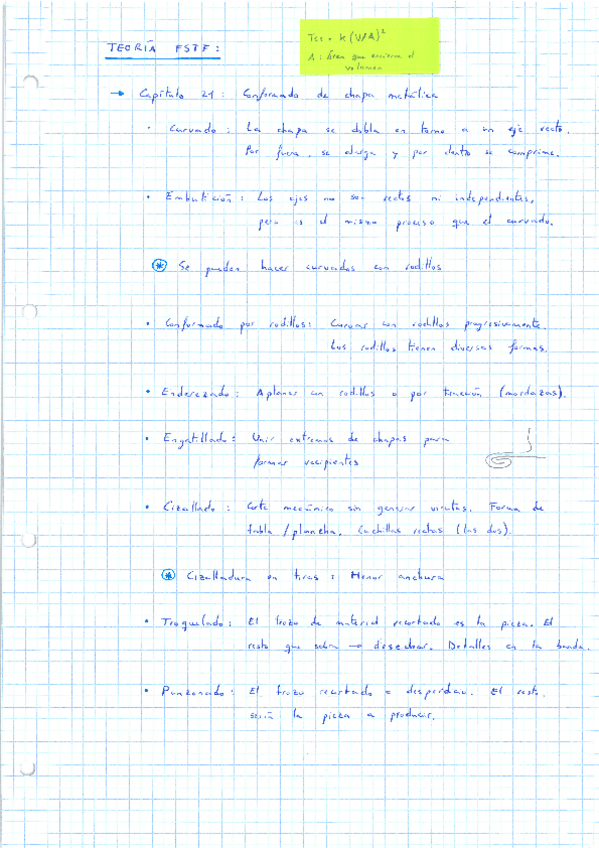 TEORÍA FSTF:
Tcc = K(V/A)²
A: Área que encierra el
volumen
→ Capítulo 21: Conformado de chapa metálica
• Curvado: La chapa se dobla en torno a un eje recto.
Por fuera, se alarga y por dentro se comprime.
• Embutición: Los ejes no son rectos ni independientes,
pero es el mismo proceso que el curvado.
* Se pueden hacer curvados con rodillos
• Conformado por rodillos: Curvar con rodillos progresivamente.
Los rodillos tienen diversas formas.
• Enderezado: Aplanar con rodillos o por tracción (mordazas).
• Engatillado: Unir extremos de chapas para
formar recipientes
• Cizallado: Corte mecánico sin generar virutas. Forma de
tabla/plancha. Cuchillas rectas (las dos).
* Cizalladura en tiras: Menor anchura
• Troquelado: El trozo de material recortado es la pieza. El
resto que sobra → desechar. Detalles en la banda.
• Punzonado: El trozo recortado a desperdicio. El resto
sería la pieza a producir.